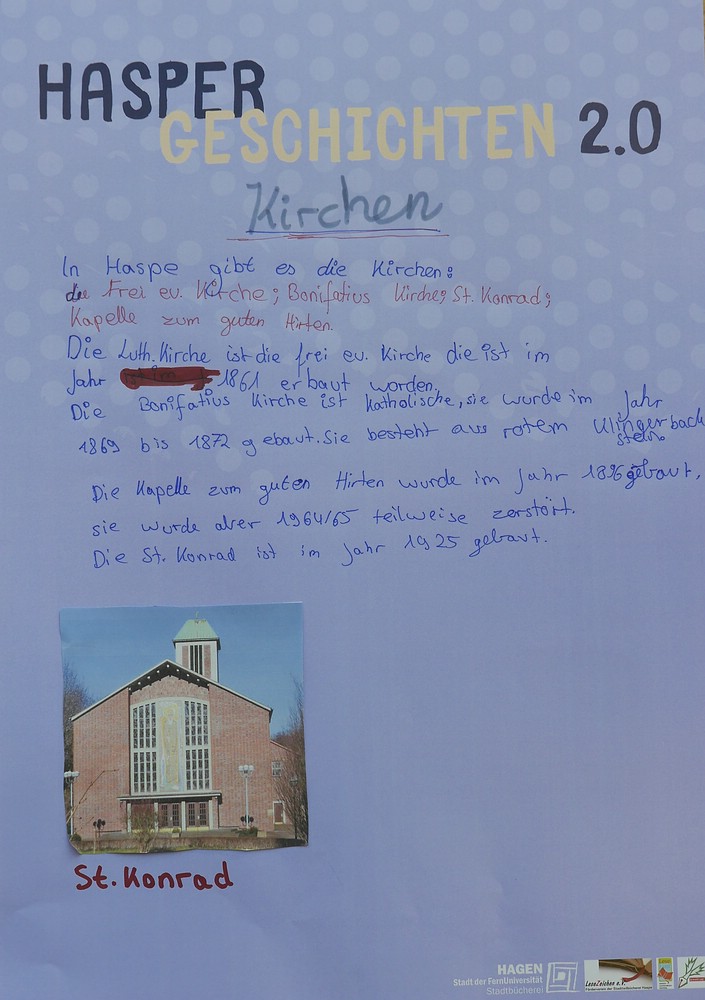 HASPER
GESCHICHTEN 2.0
Kirchen
In Haspe gibt es die Kirchen:
die Frei ev. Kirche; Bonifatius Kirche; St. Konrad;
Kapelle zum guten Hirten.
Die Luth. Kirche ist die frei ev. Kirche die ist im
Jahr 1861 erbaut worden.
Die Bonifatius Kirche ist Katholische, sie wurde im Jahr
1869 bis 1872 gebaut. Sie besteht aus rotem Klingerback
stein.
Die Kapelle zum guten Hirten wurde im Jahr 1896 gebaut,
sie wurde aber 1964/65 teilweise zerstört.
Die St. Konrad ist im Jahr 1925 gebaut.
St. Konrad
HAGEN
Stadt der FernUniversität
Stadtbücherei
LeseZeichen e.V.